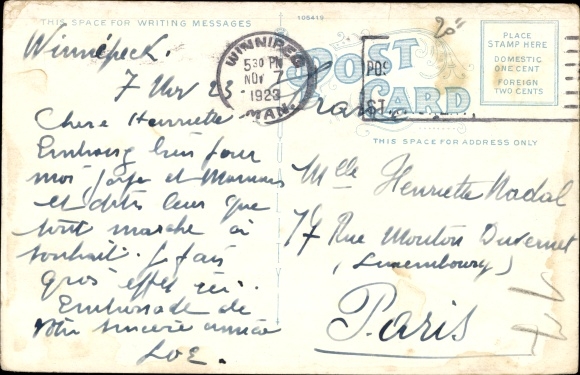 THIS SPACE FOR WRITING MESSAGES
105419
POST CARD
PLACE
STAMP HERE
DOMESTIC
ONE CENT
FOREIGN
TWO CENTS
WINNIPEG
5 30 PM
NOV 7
1923
MAN.
POS
ST
THIS SPACE FOR ADDRESS ONLY
Winnipeck.
7 Nov 23
Chere Henriette
pour
moi et Maman
et dites leur que
tout marche à
souhait. J fais
gros effet ici.
Embrassade de
votre sincère amie
Mlle Henriette Nadal
Rue Mouton Duvernet
(Luxembourg)
Paris